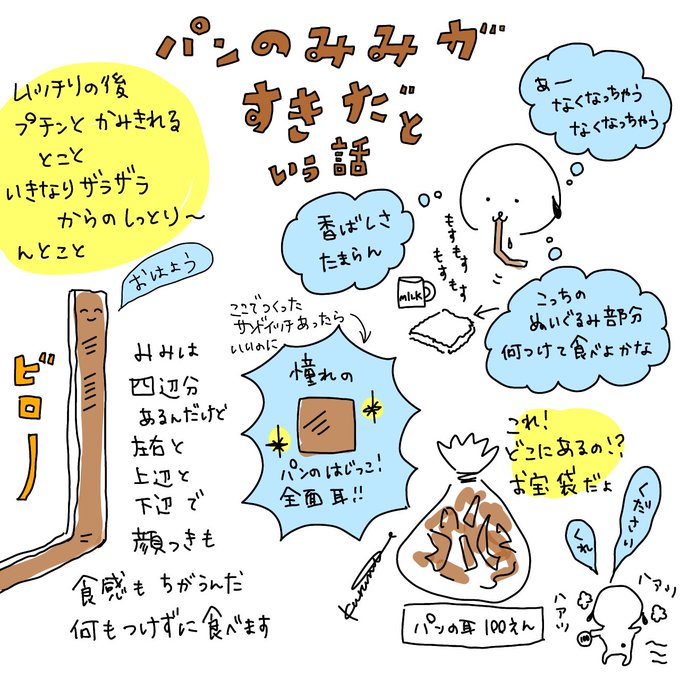 パンのみみが
すきだと
いう話
ムッチリの後
プチンと かみきれる
とこと
いきなりザラザラ
からのしっとり〜
んとこと
おはよう
ビローン
みみは
四辺分
あるんだけど
左右と
上辺と
下辺で
顔つきも
食感も ちがうんだ
何もつけずに食べます
あー
なくなっちゃう
なくなっちゃう
香ばしさ
たまらん
もすもす
もすもす
milk
こっちの
ぬいぐるみ部分
何つけて食べよかな
ここでつくった
サンドイッチあったら
いいのに
憧れの
パンのはじっこ!
全面耳!!
これ!
どこにあるの!?
お宝袋だよ
パンの耳 100えん
ください
くれ
ハアッ
ハアッ
100